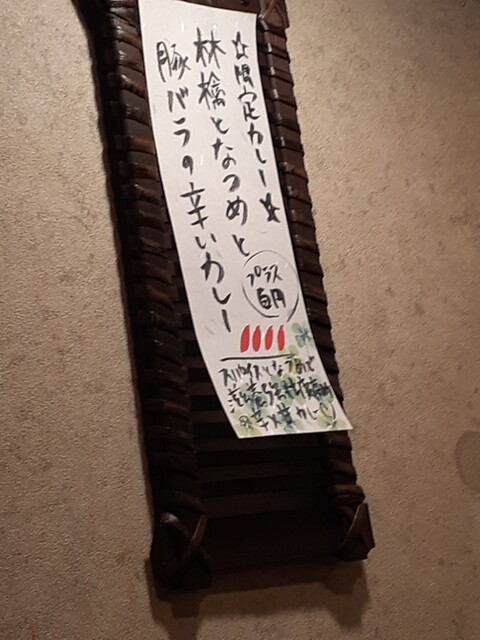 ☆限定カレー★
林檎となつめと
豚バラの辛いカレー
プラス
百円
スパイスとなつめで
辛×甘カレー♡